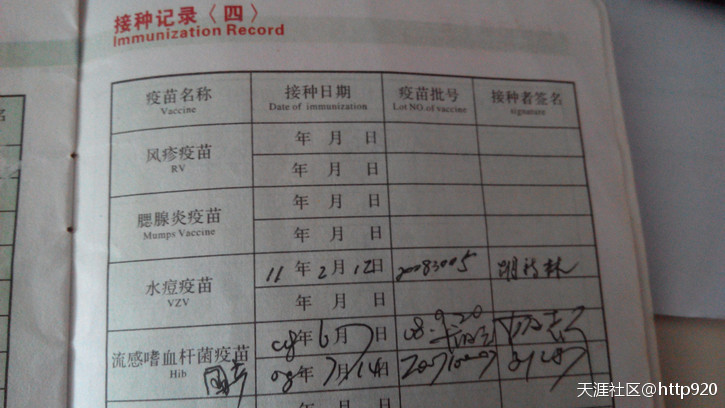 接种记录〈四〉
Immunization Record
名
疫苗名称 接种日期 疫苗批号 接种者签名
Vaccine Date of immunization Lot NO.of vaccine signature
风疹疫苗 年 月 日
RV 年 月 日
腮腺炎疫苗 年 月 日
Mumps Vaccine 年 月 日
水痘疫苗 11年2月12日 20083005
VZV 年 月 日
流感嗜血杆菌疫苗 08年6月7日
Hib 08年7月14日
年 月 日
天涯社区@http920